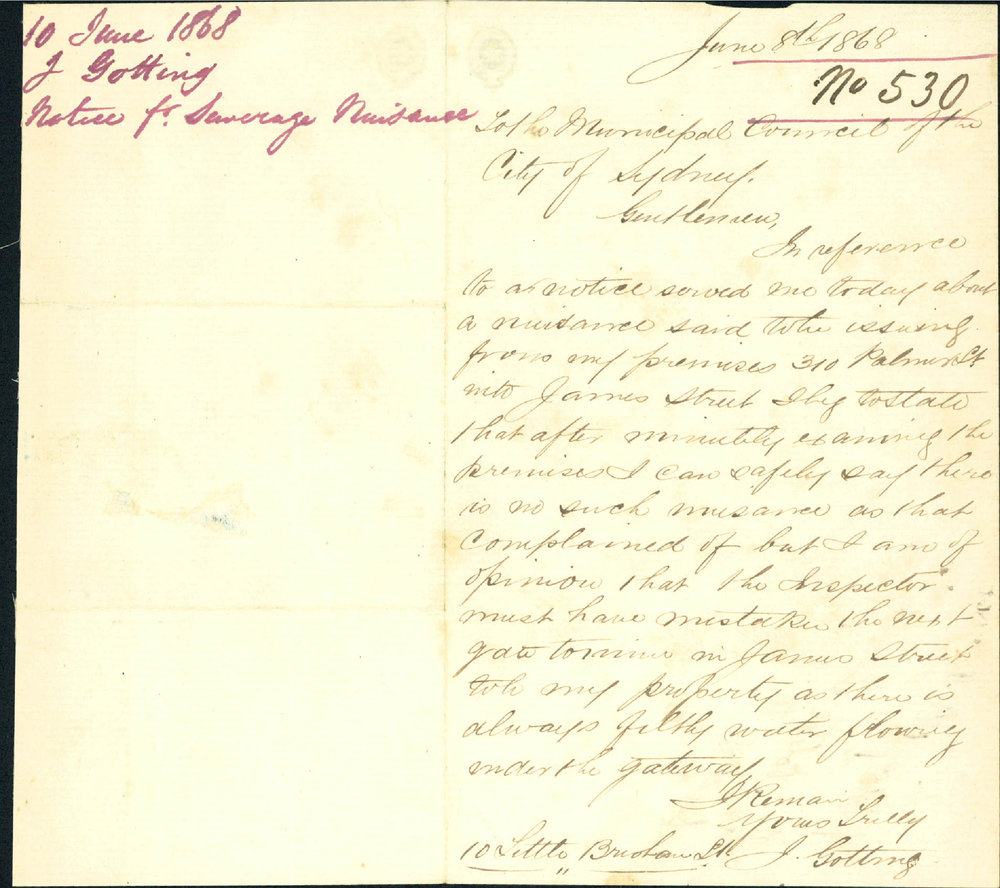 10 June 1868
J Gotting
Notice fr. Sewerage Nuisance
June 8th 1868
No 530
To the Municipal Council of the
City of Sydney.
Gentlemen,
In reference
to a notice served me today about
a nuisance said to be issuing
from my premises 310 Palmer St
into James Street I beg to state
that after minutely examing the
premises I can safely say there
is no such nuisance as that
complained of but I am of
opinion that the Inspector
must have mistaken the next
gate to mine in James Street
to be my property as there is
always filthy water flowing
under the gateway
I Remain
Yours Trully
10 Little Brisbane St. J. Gotting